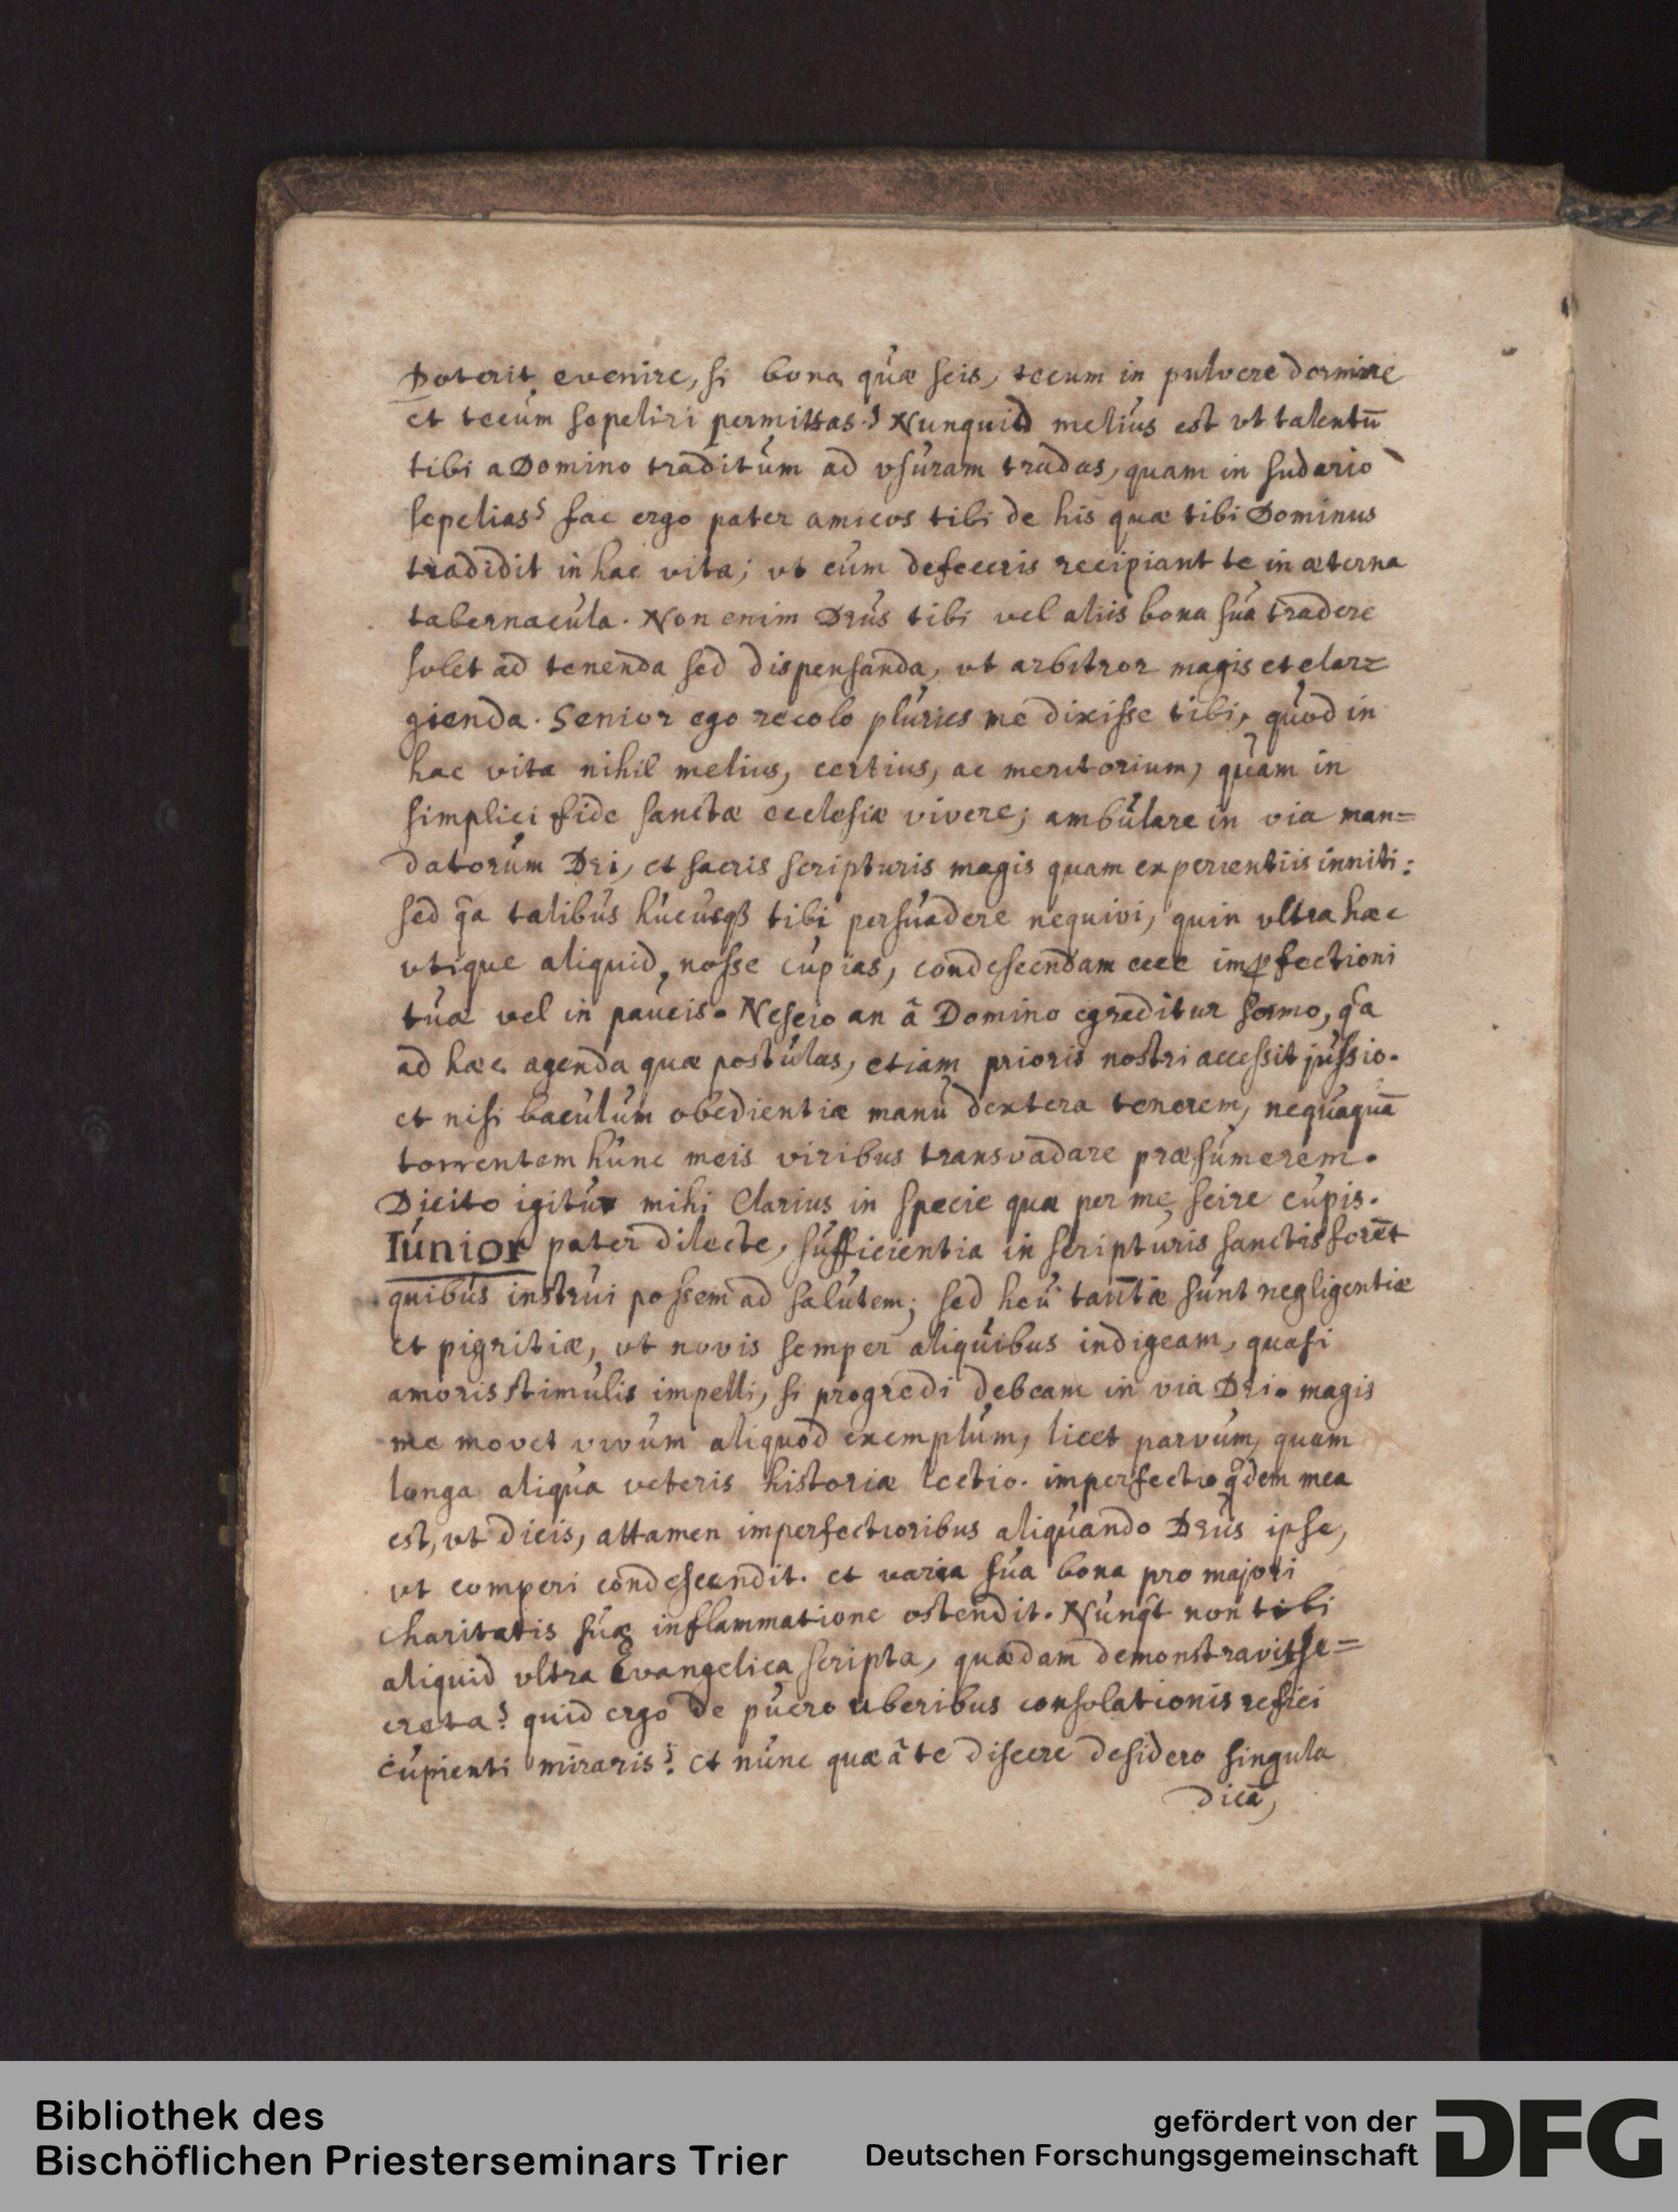 Poterit evenire, si bona quæ scis, tecum in pulvere dormire
et tecum sepeliri permittas? Nunquid melius est vt talentū
tibi a Domino traditum ad vsuram tradas, quam in sudario
sepelias? fac ergo pater amicos tibi de his quæ tibi Dominus
tradidit in hac vita; vt cum defeceris recipiant te in æterna
tabernacula. Non enim Deus tibi vel aliis bona sua tradere
solet ad tenenda sed dispensanda, vt arbitror magis et elar=
gienda. Senior ego recolo pluries me dixisse tibi, quod in
hac vita nihil melius, certius, ac meritorium, quam in
simplici fide sanctæ ecclesiæ vivere; ambulare in via man=
datorum Dei, et sacris scripturis magis quam experientiis inniti:
sed qa talibus hucusqß tibi persuadere nequivi, quin vltra hæc
vtique aliquid nosse cupias, condescendam ecce imꝑfectioni
tuæ vel in paucis. Nescio an â Domino egreditur sermo, qa
ad hæc agenda quæ postulas, etiam prioris nostri accessit jussio.
et nisi baculum obedientiæ manu dextera tenerem, nequaquā
torrentem hunc meis viribus transvadare præsumerem.
Dicito igitur mihi Clarius in specie quæ per me scire cupis.
Iunior pater dilecte, sufficientia in scripturis sanctis forēt
quibus instrui possem ad salutem; sed heu tantæ sunt negligentiæ
et pigritiæ, vt novis semper aliquibus indigeam, quasi
amoris stimulis impelli, si progredi debeam in via Dei. magis
me movet vivum aliquod exemplum, licet parvum, quam
longa aliqua veteris historiæ lectio. imperfectio qdem mea
est, vt dicis, attamen imperfectioribus aliquando Deus ipse,
vt comperi condescendit. et varia sua bona pro majori
charitatis suæ inflammatione ostendit. Nunqt non tibi
aliquid vltra Evangelica scripta, quædam demonstravit se=
creta? quid ergo de puero uberibus consolationis refici
cupienti miraris? et nunc quæ â te discere desidero singula
dicā,
Bibliothek des
Bischöflichen Priesterseminars Trier
gefördert von der
Deutschen Forschungsgemeinschaft
DFG